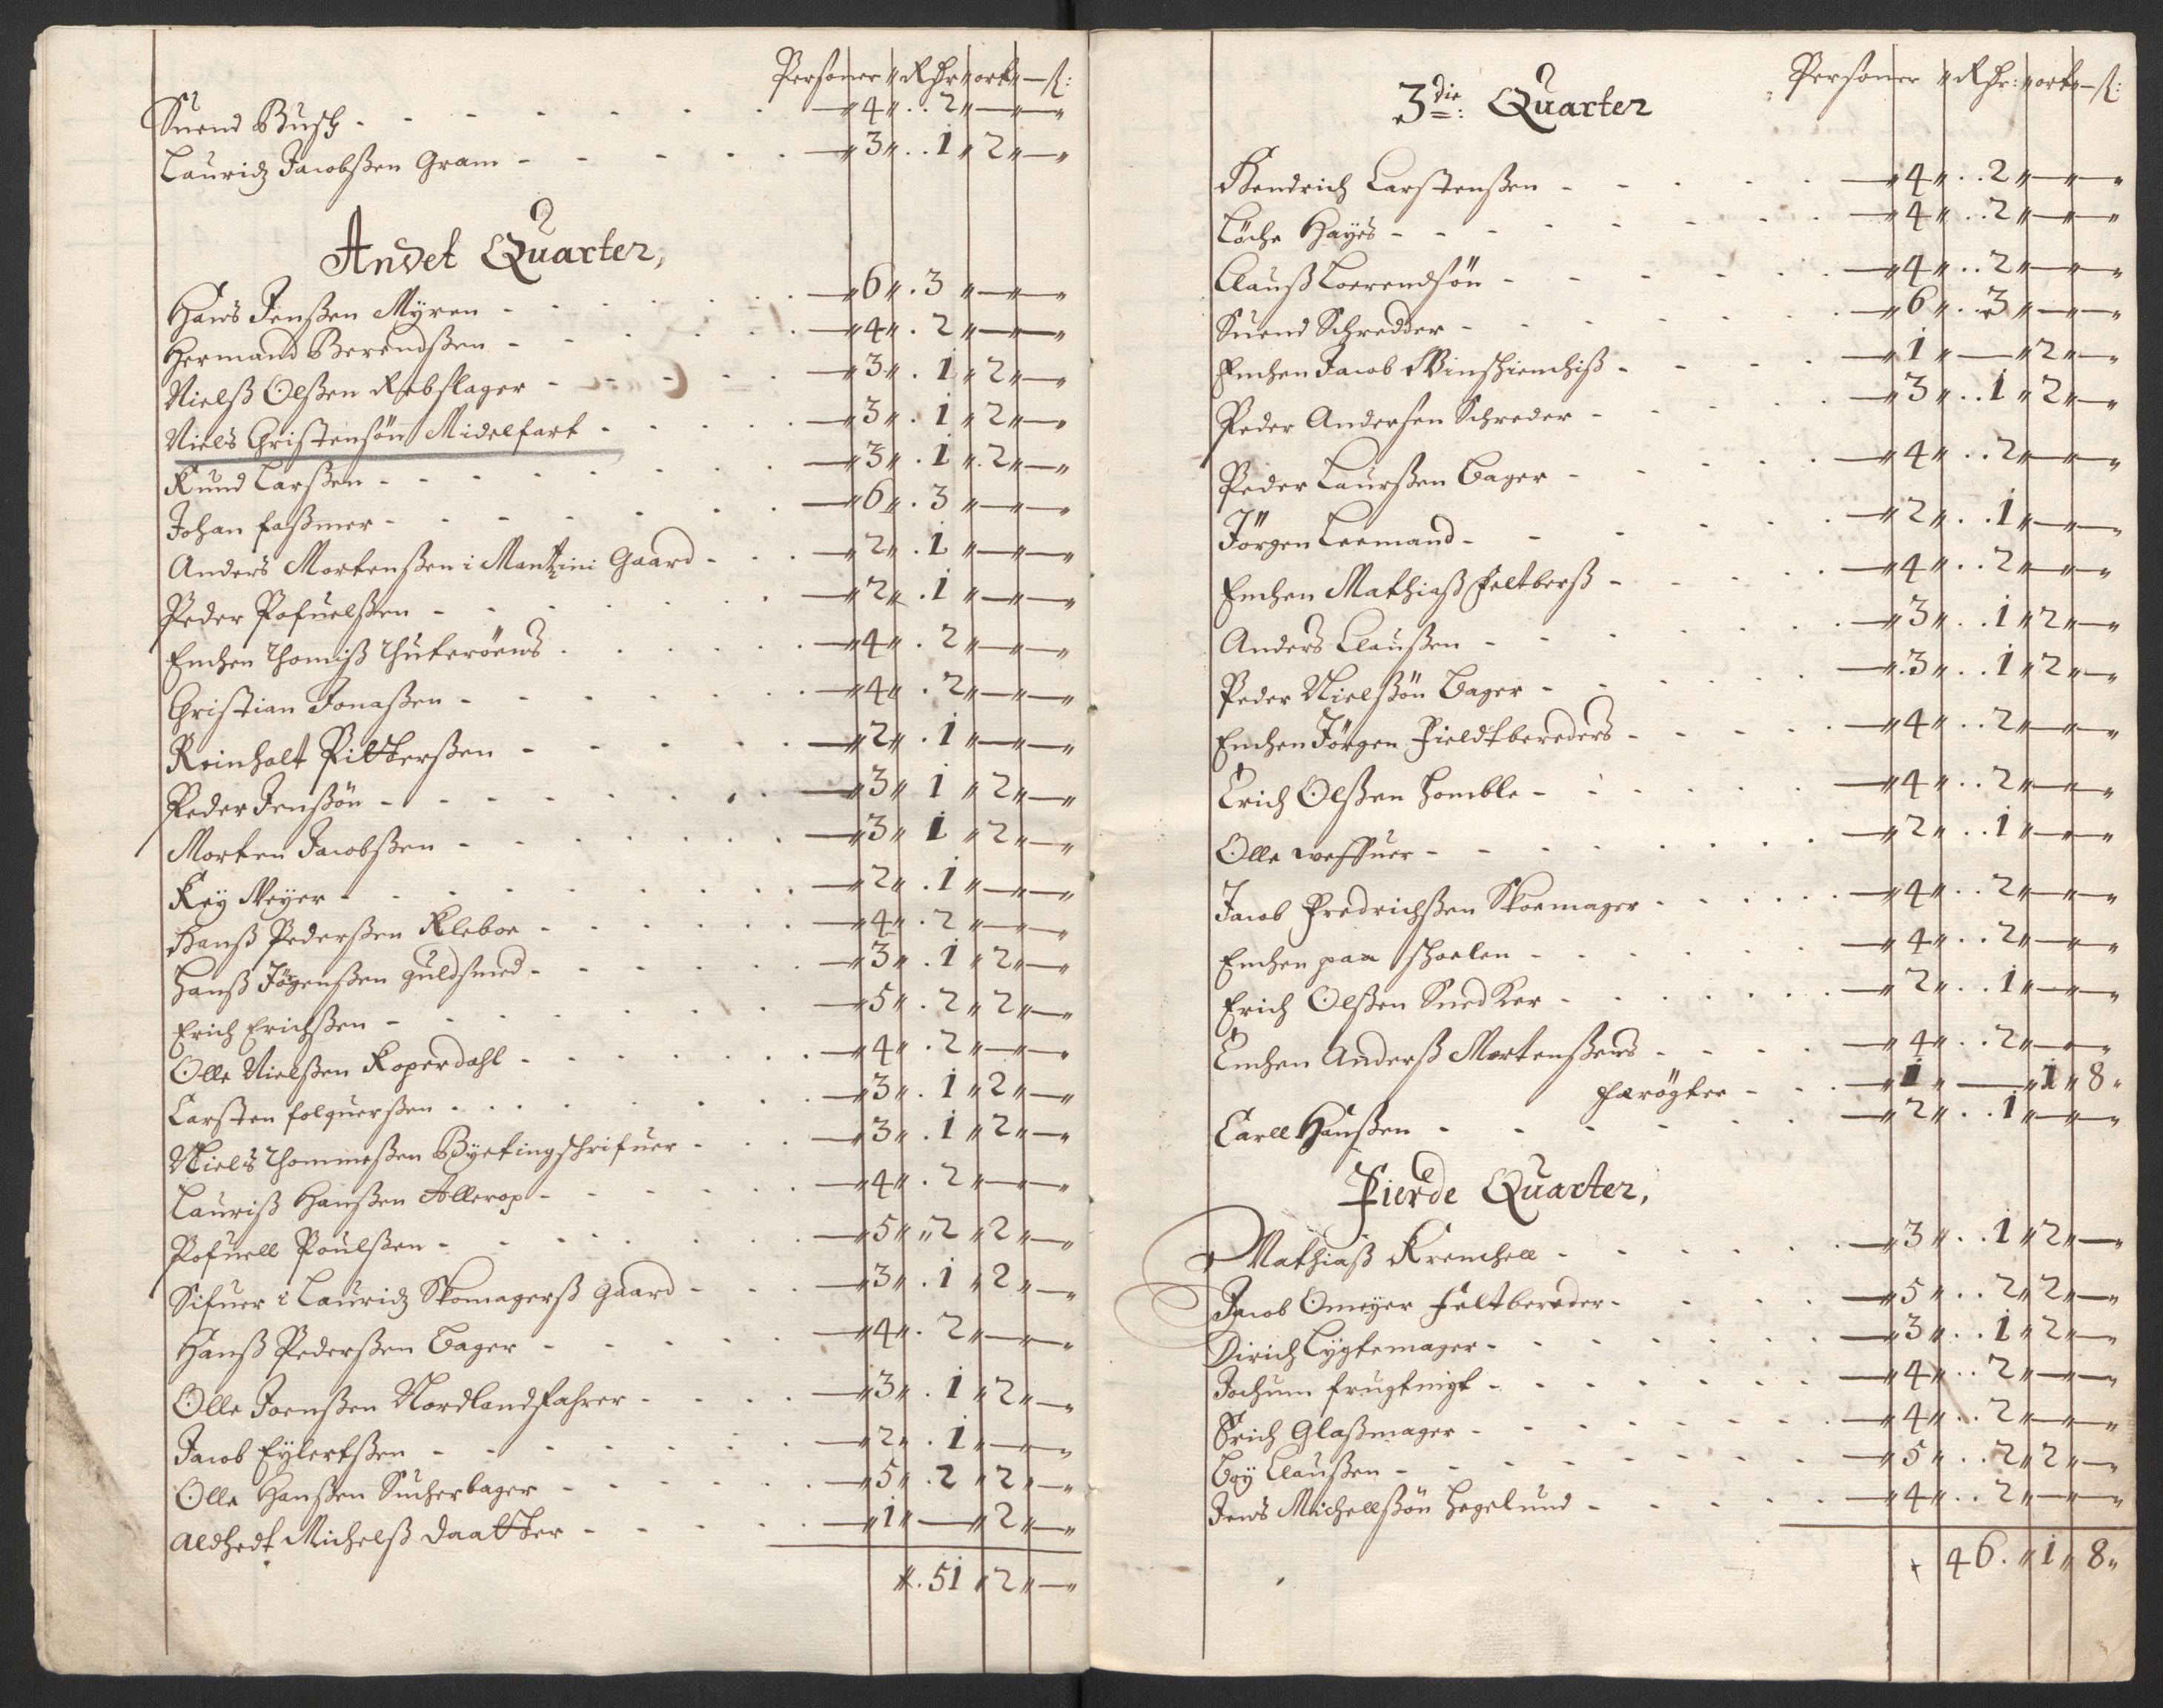 Personer Rdr ort ß:
Suend Busch - 4 .. 2 — —
Lauridz Jacobßen Gram - 3 .. 1 2 —
Andet Quarter,
Hans Jenßen Myren - 6 . 3 — —
Hermand Berendßen - 4 . 2 — —
Nielß Olßen Rebslager - 3 . 1 2 —
Niels Christensön Midelfart - 3 . 1 2 —
Knud Larßen - 3 . 1 . 2 —
Johan faßmer - 6 . 3 — —
Anders Mortenßen i Mantzini Gaard - 2 . 1 — —
Peder Pofuelßen - 2 . 1 — —
Enchen Thomiß - 4 . 2 — —
Christian Jonaßen - 4 . 2 — —
Reinholt Pitterßen - 2 . 1 — —
Peder Jenßön - 3 1 2 —
Morten Jacobßen - 3 1 2 —
Key Meyer - 2 . 1 — —
Hanß Pederßen Kleboe - 4 . 2 — —
Hanß Jörgenßen guldsmed - 3 . 1 2 —
Erich Erichßen - 5 . 2 2 —
Olle Nielßen Koperdahl - 4 . 2 — —
Carsten folquerßen - 3 . 1 2 —
Niels Thommeßen Byetingschrifuer - 3 . 1 2 —
Lauriß Hanßen Allerop - 4 . 2 — —
Pofuell Poulßen - 5 2 2 —
Sifuer i Lauridz Skomagerß gaard - 3 . 1 2 —
Hanß Pederßen Bager - 4 . 2 — —
Olle Joenßen Nordlandfahrer - 3 . 1 2 —
Jacob Eylertßen - 2 . 1 — —
Olle Hanßen Sucherbager - 5 . 2 2 —
Aedhedt Michelß Daatter - 1 — 2 —
51 2 —
Personer Rdr: ort ß:
3die: Quarter
Hendrich Carstenßen - 4 .. 2 — —
Löche Hayes - 4 .. 2 — —
Clauß Loerendsön - 4 .. 2 — —
Suend Schredder - 6 .. 3 — —
Enchen Jacob - 1 — 2 —
Peder Andersen Schreder - 3 .. 1 2 —
Peder Laurßen Bager - 4 .. 2 — —
Jörgen Leemand - 2 .. 1 — —
Enchen Mathiaß Feltberß - 4 .. 2 — —
Anders Claußen - 3 .. 1 2 —
Peder Nielßön Bager - 3 .. 1 2 —
Enchen Jörgen Fieldtbereders - 4 .. 2 — —
Erich Olßen Homble - 4 .. 2 — —
Olle weffuer - 2 .. 1 — —
Jacob Fredrichßen Skoemager - 4 .. 2 — —
Enchen paa schoelen - 4 .. 2 — —
Erich Olßen Snedker - 2 .. 1 — —
Enchen Anderß Mortenßens - 4 .. 2 — —
færögter - 1 — 1 8
Carll Hanßen - 2 .. 1 — —
Fierde Quarter,
Mathiaß Krenchell - 3 .. 1 2 —
Jacob Omeyer Feltbereder - 5 .. 2 2 —
Dirich Lygtemager - 3 .. 1 2 —
Jochum frugtnigt - 4 .. 2 — —
Erich Glaßmager - 4 .. 2 — —
Boy Claußen - 5 .. 2 2 —
Jens Michellßön Hegelund - 4 .. 2 — —
46 . 1 8